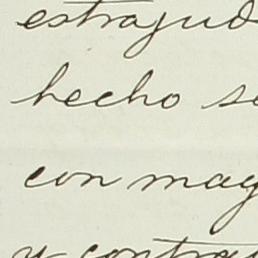 estrajud
hecho se
con mag
y contra